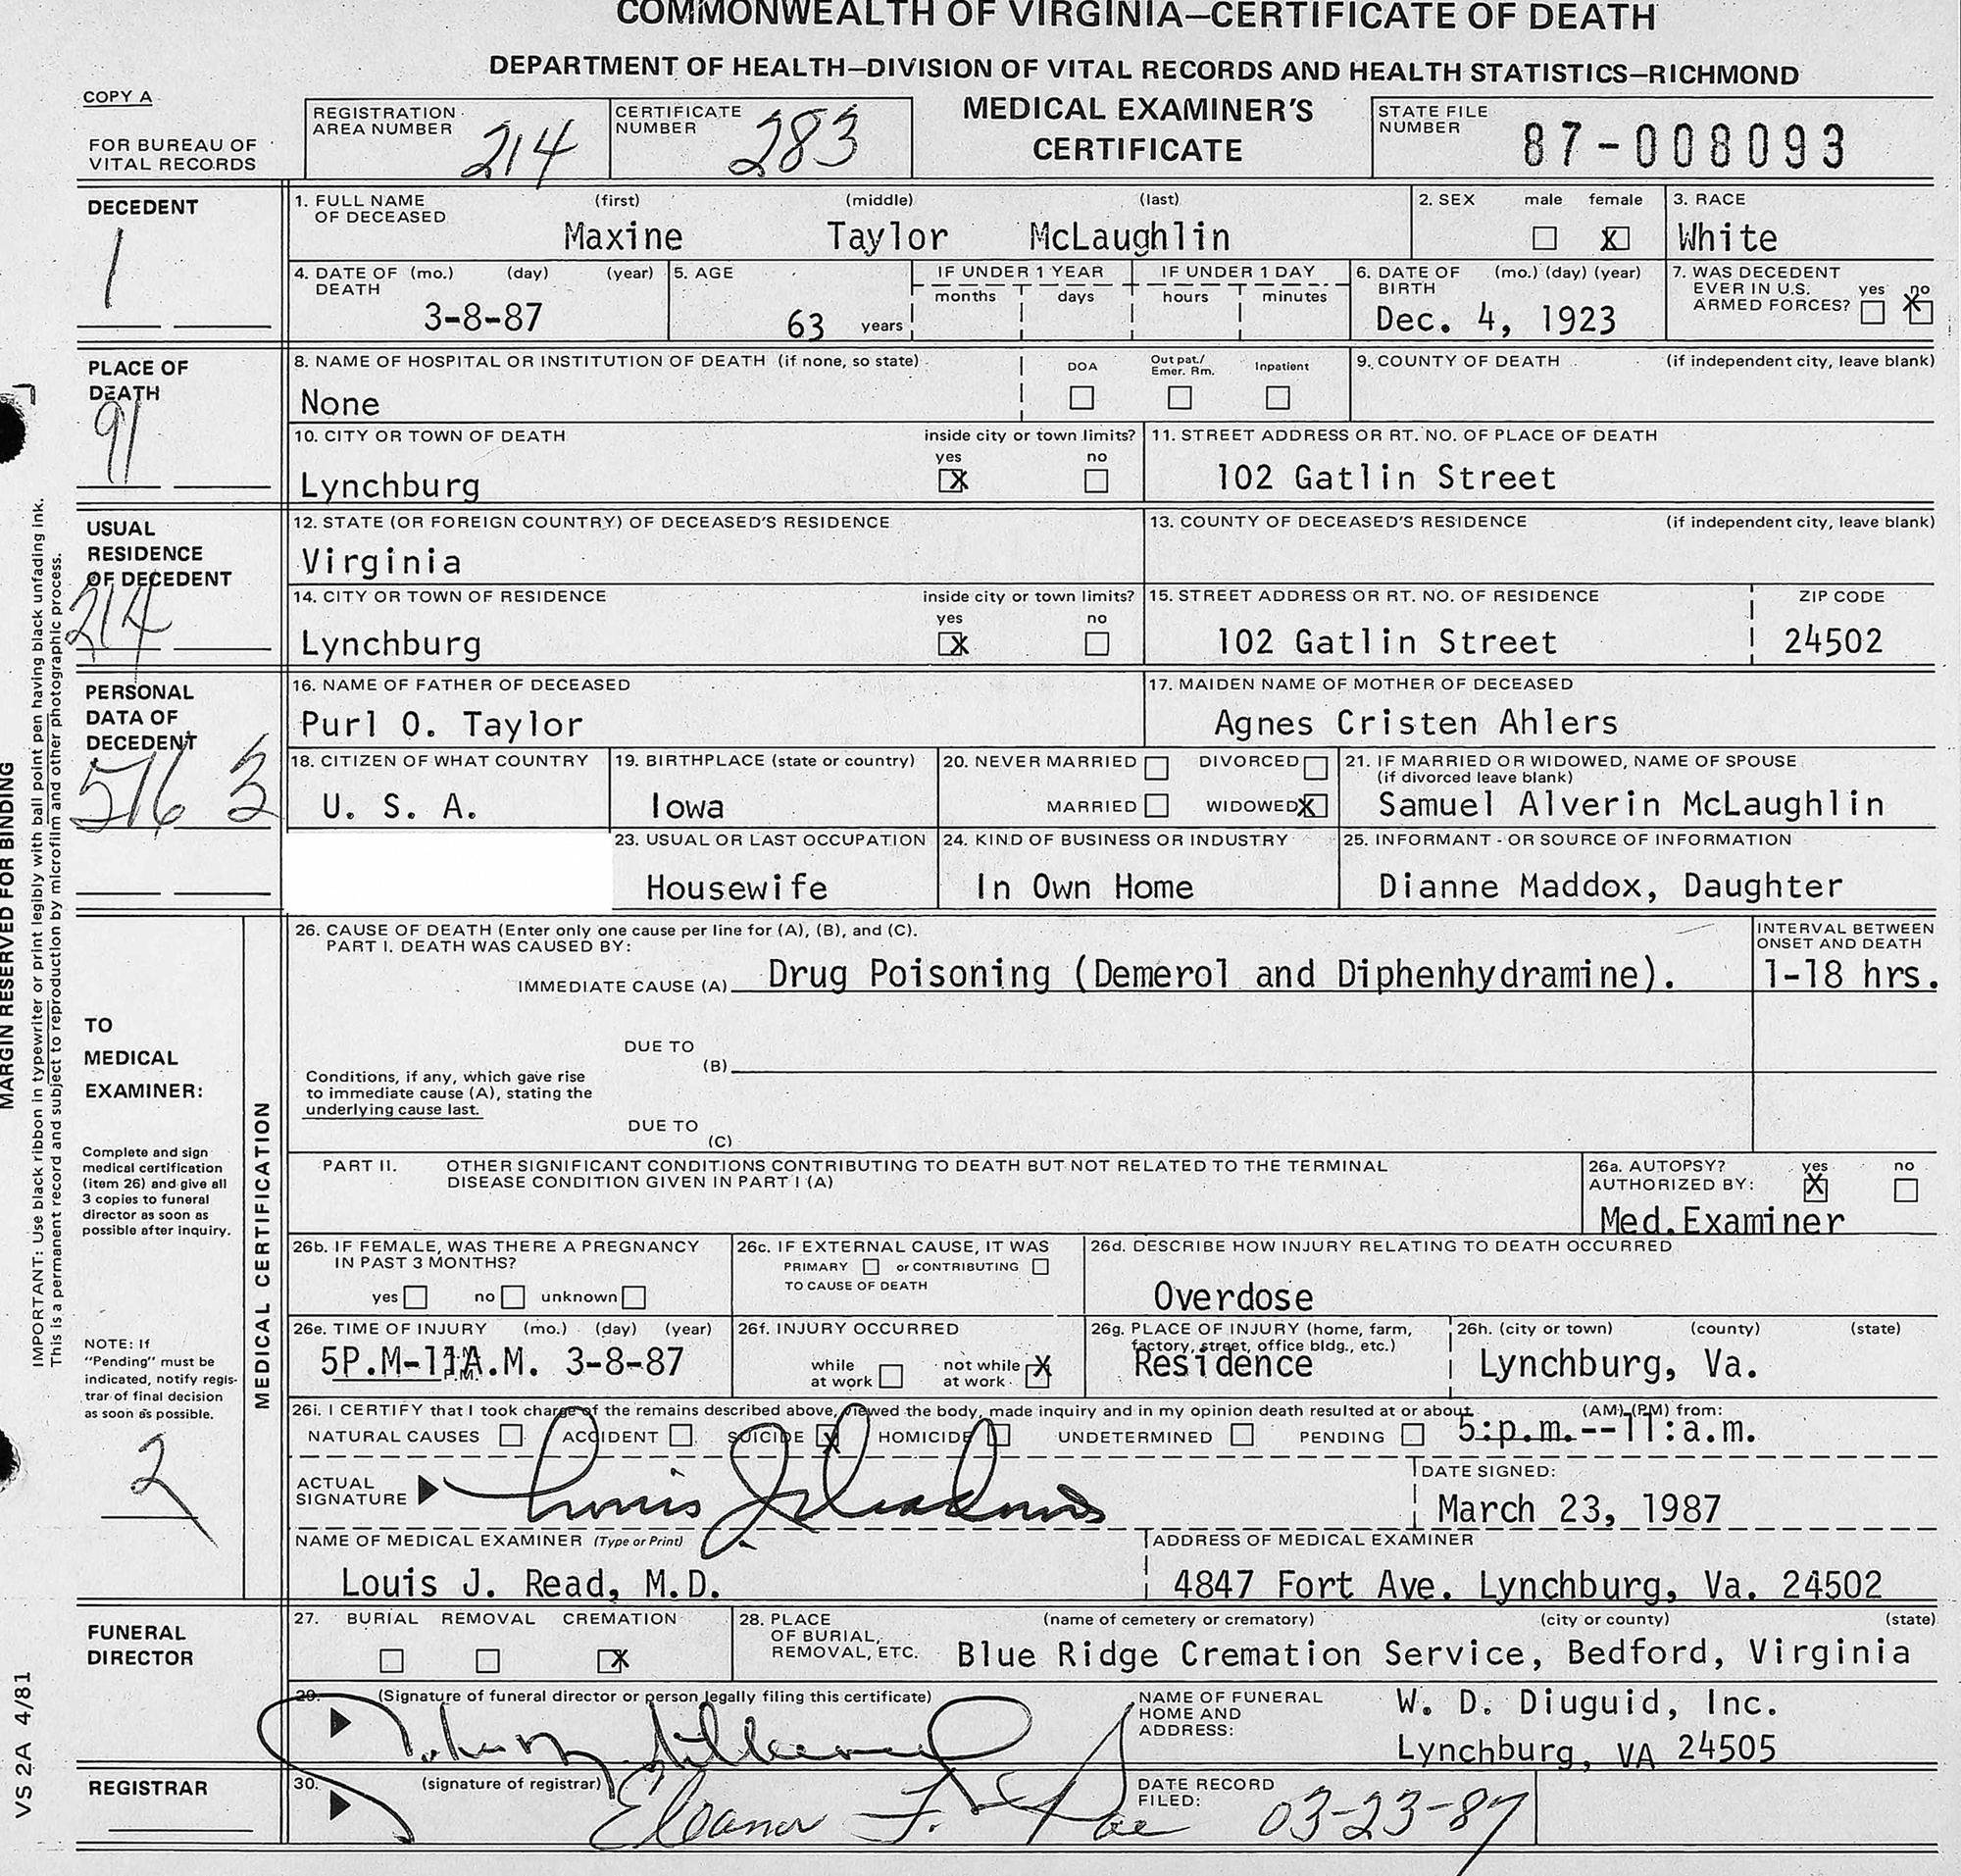 COMMONWEALTH OF VIRGINIA—CERTIFICATE OF DEATH
DEPARTMENT OF HEALTH—DIVISION OF VITAL RECORDS AND HEALTH STATISTICS—RICHMOND
COPY A
FOR BUREAU OF
VITAL RECORDS
REGISTRATION
AREA NUMBER 214
CERTIFICATE
NUMBER 283
MEDICAL EXAMINER'S
CERTIFICATE
STATE FILE
NUMBER 87-008093
DECEDENT
1
1. FULL NAME (first) (middle) (last)
OF DECEASED
Maxine Taylor McLaughlin
2. SEX male female
X
3. RACE
White
4. DATE OF (mo.) (day) (year)
DEATH
3-8-87
5. AGE
63 years
IF UNDER 1 YEAR
months days
IF UNDER 1 DAY
hours minutes
6. DATE OF (mo.) (day) (year)
BIRTH
Dec. 4, 1923
7. WAS DECEDENT
EVER IN U.S. yes no
ARMED FORCES? X
PLACE OF
DEATH
91
8. NAME OF HOSPITAL OR INSTITUTION OF DEATH (if none, so state)
None
DOA Out pat./ Inpatient
Emer. Rm.
9. COUNTY OF DEATH (if independent city, leave blank)
10. CITY OR TOWN OF DEATH inside city or town limits?
yes no
Lynchburg X
11. STREET ADDRESS OR RT. NO. OF PLACE OF DEATH
102 Gatlin Street
USUAL
RESIDENCE
OF DECEDENT
214
12. STATE (OR FOREIGN COUNTRY) OF DECEASED'S RESIDENCE
Virginia
13. COUNTY OF DECEASED'S RESIDENCE (if independent city, leave blank)
14. CITY OR TOWN OF RESIDENCE inside city or town limits?
yes no
Lynchburg X
15. STREET ADDRESS OR RT. NO. OF RESIDENCE ZIP CODE
102 Gatlin Street 24502
PERSONAL
DATA OF
DECEDENT
576 3
16. NAME OF FATHER OF DECEASED
Purl O. Taylor
17. MAIDEN NAME OF MOTHER OF DECEASED
Agnes Cristen Ahlers
18. CITIZEN OF WHAT COUNTRY
U. S. A.
19. BIRTHPLACE (state or country)
Iowa
20. NEVER MARRIED DIVORCED
MARRIED WIDOWED X
21. IF MARRIED OR WIDOWED, NAME OF SPOUSE
(if divorced leave blank)
Samuel Alverin McLaughlin
23. USUAL OR LAST OCCUPATION
Housewife
24. KIND OF BUSINESS OR INDUSTRY
In Own Home
25. INFORMANT - OR SOURCE OF INFORMATION
Dianne Maddox, Daughter
MARGIN RESERVED FOR BINDING
IMPORTANT: Use black ribbon in typewriter or print legibly with ball point pen having black unfading ink.
This is a permanent record and subject to reproduction by microfilm and other photographic process.
TO
MEDICAL
EXAMINER:
Complete and sign
medical certification
(item 26) and give all
3 copies to funeral
director as soon as
possible after inquiry.
NOTE: If
"Pending" must be
indicated, notify regis-
trar of final decision
as soon as possible.
2
MEDICAL CERTIFICATION
26. CAUSE OF DEATH (Enter only one cause per line for (A), (B), and (C).
PART I. DEATH WAS CAUSED BY:
IMMEDIATE CAUSE (A) Drug Poisoning (Demerol and Diphenhydramine).
INTERVAL BETWEEN
ONSET AND DEATH
1-18 hrs.
DUE TO
(B)
Conditions, if any, which gave rise
to immediate cause (A), stating the
underlying cause last.
DUE TO
(C)
PART II. OTHER SIGNIFICANT CONDITIONS CONTRIBUTING TO DEATH BUT NOT RELATED TO THE TERMINAL
DISEASE CONDITION GIVEN IN PART I (A)
26a. AUTOPSY? yes no
AUTHORIZED BY: X
Med.Examiner
26b. IF FEMALE, WAS THERE A PREGNANCY
IN PAST 3 MONTHS?
yes no unknown
26c. IF EXTERNAL CAUSE, IT WAS
PRIMARY or CONTRIBUTING
TO CAUSE OF DEATH
26d. DESCRIBE HOW INJURY RELATING TO DEATH OCCURRED
Overdose
26e. TIME OF INJURY (mo.) (day) (year)
5P.M-11A.M. 3-8-87
P.M.
26f. INJURY OCCURRED
while not while
at work at work X
26g. PLACE OF INJURY (home, farm,
factory, street, office bldg., etc.)
Residence
26h. (city or town) (county) (state)
Lynchburg, Va.
26i. I CERTIFY that I took charge of the remains described above, viewed the body, made inquiry and in my opinion death resulted at or about (AM) (PM) from:
NATURAL CAUSES ACCIDENT SUICIDE X HOMICIDE UNDETERMINED PENDING 5:p.m.--11:a.m.
ACTUAL
SIGNATURE
DATE SIGNED:
March 23, 1987
NAME OF MEDICAL EXAMINER (Type or Print)
Louis J. Read, M.D.
ADDRESS OF MEDICAL EXAMINER
4847 Fort Ave. Lynchburg, Va. 24502
FUNERAL
DIRECTOR
27. BURIAL REMOVAL CREMATION
X
28. PLACE (name of cemetery or crematory) (city or county) (state)
OF BURIAL,
REMOVAL, ETC. Blue Ridge Cremation Service, Bedford, Virginia
29. (Signature of funeral director or person legally filing this certificate)
NAME OF FUNERAL
HOME AND
ADDRESS:
W. D. Diuguid, Inc.
Lynchburg, VA 24505
REGISTRAR
30. (signature of registrar)
Eleanor F. Poe
DATE RECORD
FILED: 03-23-87
VS 2A 4/81